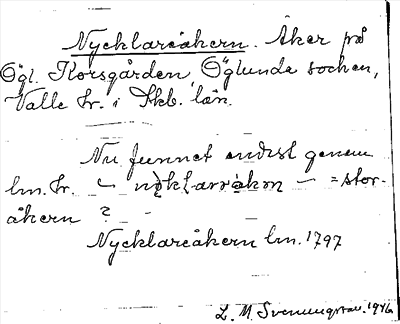 Nycklareåkern. Åker på
Ögl. Korsgården, Öglunda socken,
Valle hr. i Skb. län.
Nu funnet endast genom
lm. hr. = stor-
åkern ?
Nycklareåkern lm. 1797
L. M. Svenungsson. 1946